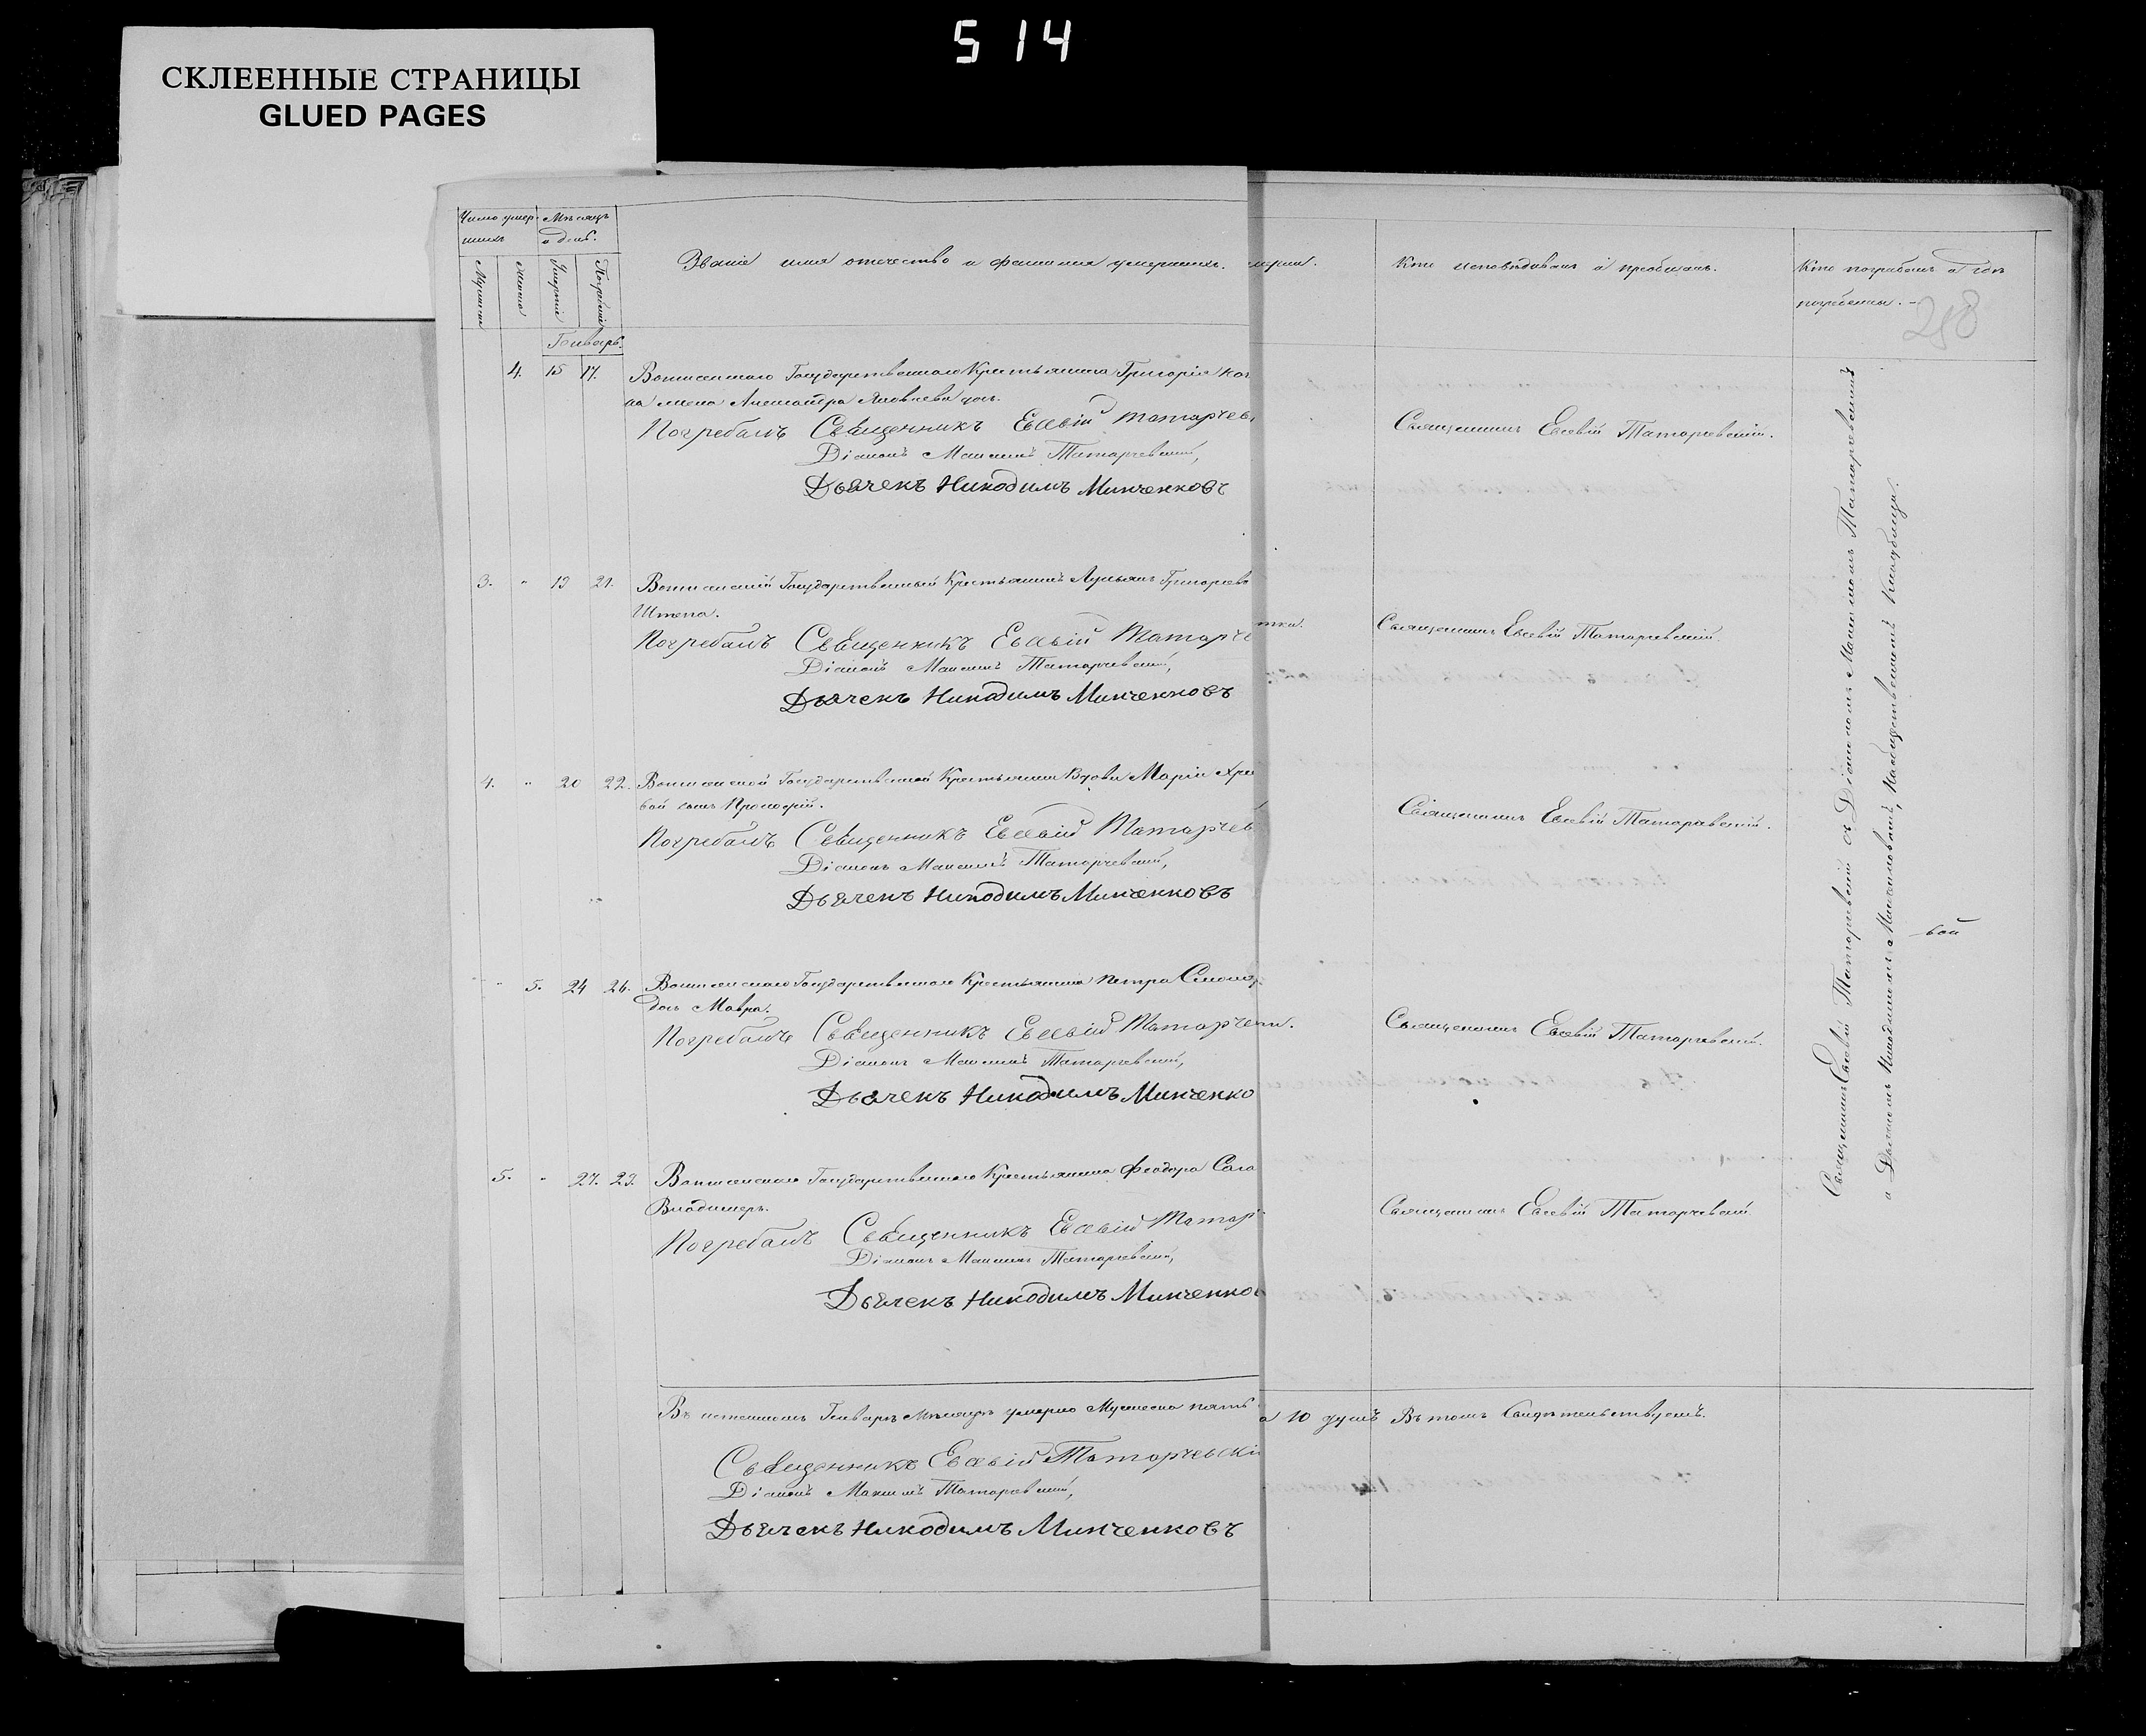 514
СКЛЕЕННЫЕ СТРАНИЦЫ
GLUED PAGES
Число умер-
шихъ
Мѣсяцъ
и день.
Званіе имя отечество и фамилія умершихъ.
Кто исповѣдывалъ и пріобщалъ.
Кто погребалъ и гдѣ
погребены.
Генварь.
4. 15 17. Государственнаго Крестьянина Григорія
жена
Погребалъ Священникъ Евсевій Татарчев
Діаконъ Максимъ Татарчевскій,
Дьячекъ Никодимъ Минченковъ
Священникъ Евсевій Татарчевскій.
3. " 19 21. Государственный Крестьянинъ Лукьянъ Григорьевъ
Штепа.
Погребалъ Священникъ Евсевій Татарче
Діаконъ Максимъ Татарчевскій,
Дьячекъ Никодимъ Минченковъ
Священникъ Евсевій Татарчевскій.
4. " 20 22. Государственной Крестьянки Вдовы Маріи
вой сынъ Прокофій.
Погребалъ Священникъ Евсевій Татарчев
Діаконъ Максимъ Татарчевскій,
Дьячекъ Никодимъ Минченковъ
Священникъ Евсевій Татарчевскій.
" 5. 24 26. Государственнаго Крестьянина Петра
дочь Мавра.
Погребалъ Священникъ Евсевій Татарче
Діаконъ Максимъ Татарчевскій,
Дьячекъ Никодимъ Минченко
Священникъ Евсевій Татарчевскій.
5. " 27. 29. Государственнаго Крестьянина Феодора
Владимеръ.
Погребалъ Священникъ Евсевій Татар
Діаконъ Максимъ Татарчевскій,
Дьячекъ Никодимъ Минченко
Священникъ Евсевій Татарчевскій.
Священникъ Евсевій Татарчевскій съ Діакономъ Максимомъ Татарчевскимъ
и Дьячкомъ Никодимомъ Минченковымъ, на общественномъ кладбищѣ.
вой
Въ Генварѣ Мѣсяцѣ умерло Мужеска пять
а 10 душъ Въ томъ Свидѣтельствуемъ.
Священникъ Евсевій Татарчевскій
Діаконъ Максимъ Татарчевскій,
Дьячекъ Никодимъ Минченковъ